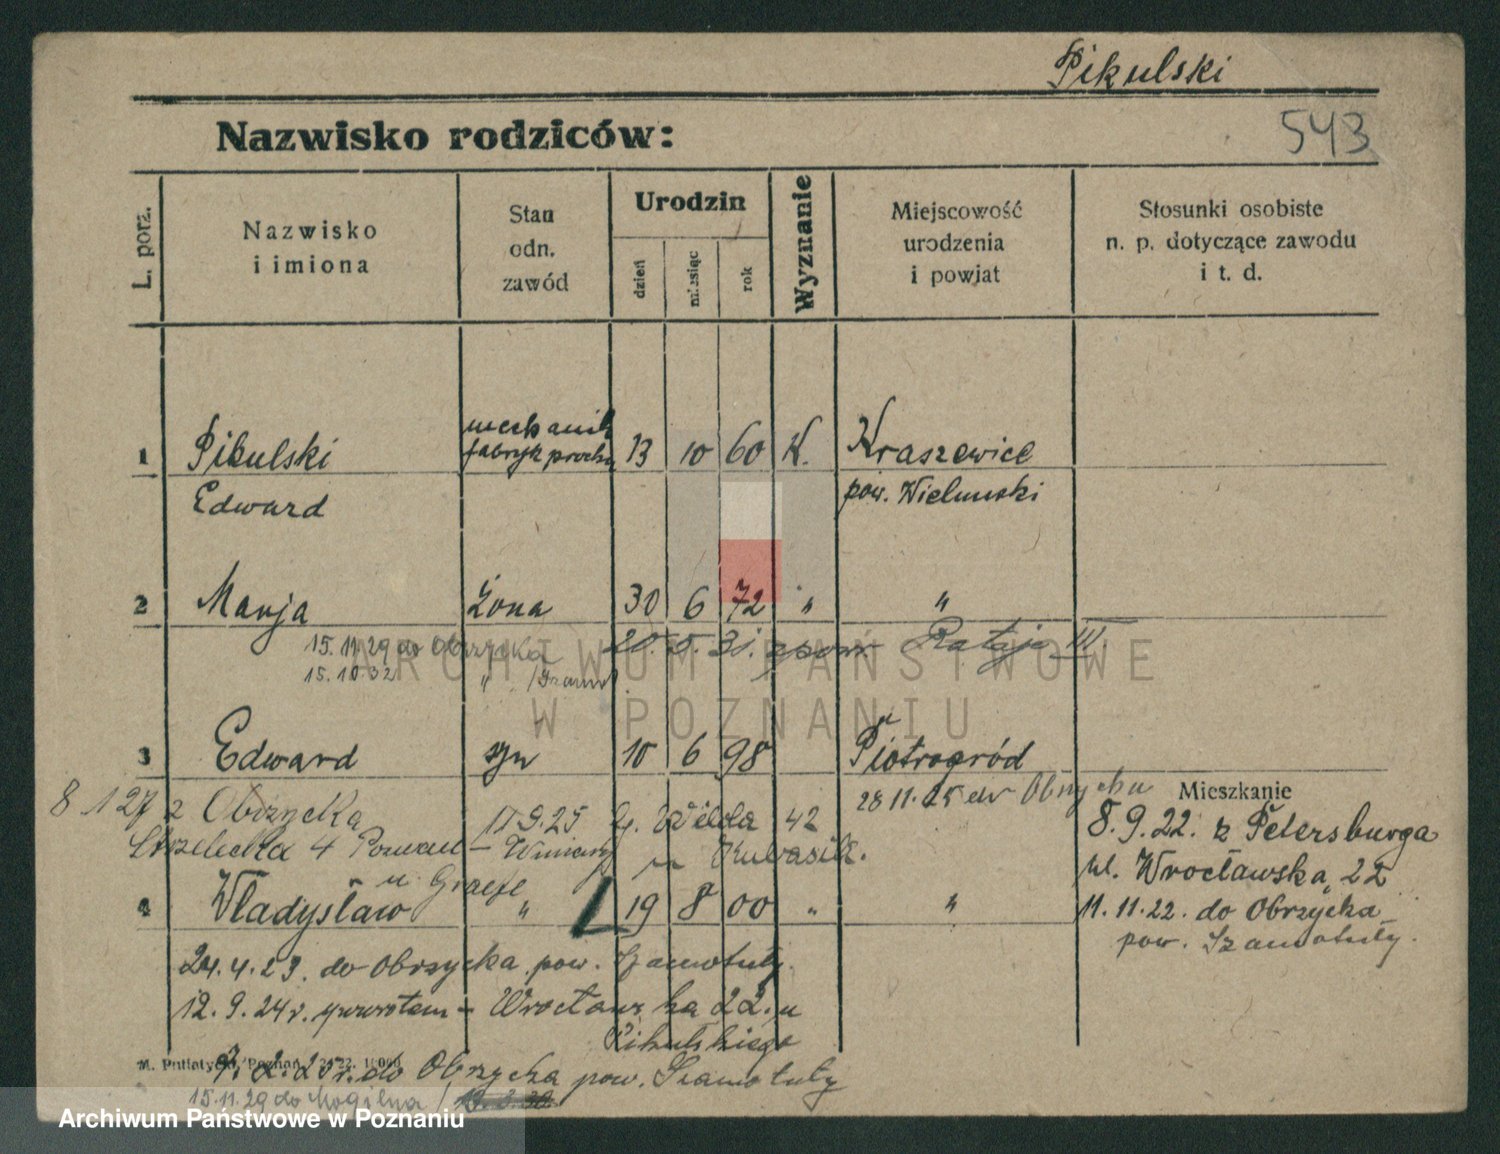 Pikulski
543
Nazwisko rodziców:
L. porz.
Nazwisko
i imiona
Stan
odn.
zawód
Urodzin
dzień
miesiąc
rok
Wyznanie
Miejscowość
urodzenia
i powiat
Stosunki osobiste
n. p. dotyczące zawodu
i t. d.
1 Pikulski mechanik 13 10 60 K. Kraszewice
fabryk prochu
Edward pow. Wieluński
2 Marja żona 30 6 72 " "
15.11.29 do Obrzycka 20. 5. 31. zpow. Rataje III
15.10.32 "
3 Edward syn 10 6 98 Piotrogród
8 1 27 z Obrzycka 11 9.25 G. Wilda 42 28 11.25 do Obrzycka
Strzelecka 4 Poznań - Winiary
u Graefe
4 Władysław " 19 8 00 " "
Mieszkanie
8. 9. 22. z Petersburga
ul. Wrocławska 22
11. 11. 22. do Obrzycka
pow. Szamotuły.
24. 4. 23. do Obrzycka pow. Szamotuły.
12. 9. 24 r. zpowrotem - Wrocławska 22. u
Pikulskiego
2. 25 r. do Obrzycka pow. Szamotuły
M. Putiatycki, Poznań
15.11.29 do Mogilna
ARCHIWUM PAŃSTWOWE
W POZNANIU
Archiwum Państwowe w Poznaniu